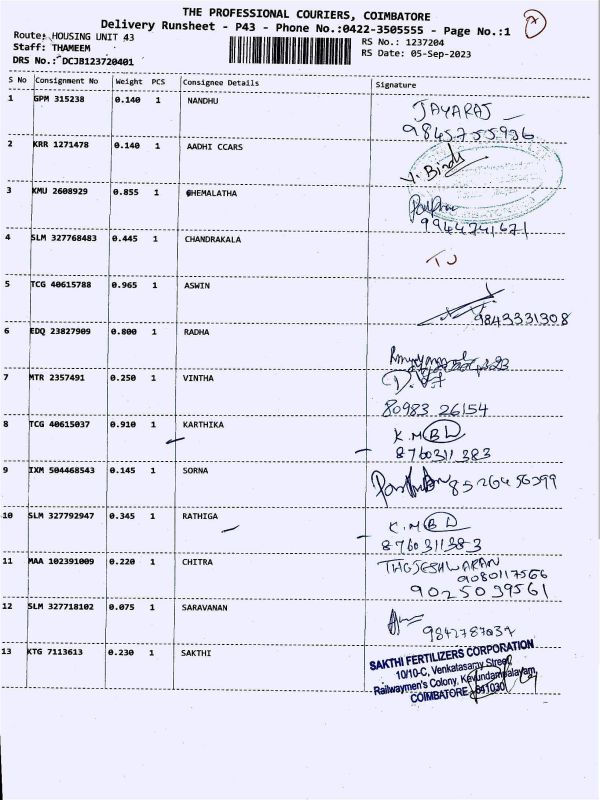 THE PROFESSIONAL COURIERS, COIMBATORE
Delivery Runsheet - P43 - Phone No.:0422-3505555 - Page No.:1
Route: HOUSING UNIT 43
RS No.: 1237204
Staff: THAMEEM
RS Date: 05-Sep-2023
DRS No.: DCJB123720401
S No Consignment No Weight PCS Consignee Details Signature
1 GPM 315238 0.140 1 NANDHU JAYARAJ
9845755936
2 KRR 1271478 0.140 1 AADHI CCARS
3 KMU 2608929 0.855 1 CHEMALATHA
9944741671
4 SLM 327768483 0.445 1 CHANDRAKALA
5 TCG 40615788 0.965 1 ASWIN
9843331308
6 EDQ 23827909 0.800 1 RADHA
7 MTR 2357491 0.250 1 VINTHA
80983 26154
8 TCG 40615037 0.910 1 KARTHIKA K.M BL
8760311 383
9 IXM 504468543 0.145 1 SORNA
10 SLM 327792947 0.345 1 RATHIGA K.M BL
8760311383
11 MAA 102391009 0.220 1 CHITRA
9080117566
9025039561
12 SLM 327718102 0.075 1 SARAVANAN
9842787032
13 KTG 7113613 0.230 1 SAKTHI SAKTHI FERTILIZERS CORPORATION
10/10-C, Venkatasamy Street,
Railwaymen's Colony, Kavundampalayam,
COIMBATORE - 641030